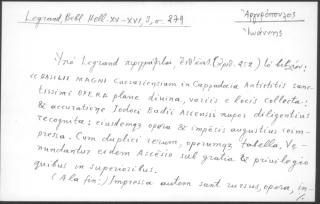 Legrand, Bibl. Hell. XV-XVI, 3, σ. 279
Ἀργυρόπουλος
Ἰωάννης
Ὑπὸ Legrand περιγράφεται, ἐνθ' ἀνωτ. (ἀριθ. 252) τὸ βιβλίον:
«BASILII MAGNI Caesariensium in Cappadocia Antistitis sanc-
tissimi OPERA plane divina, variis e locis collecta:
& accuratione Iodoci Badii Ascensii nuper diligentius
recognita: eiusdemq; opera & impẽsis augustius reim-
pressa. Cum duplici rerum, operumq; tabella. Ve-
nundantur eidem Ascẽsio sub gratia & privilegio
quibus in superioribus.
(A la fin:) Impressa autem sunt rursus, opera, in-